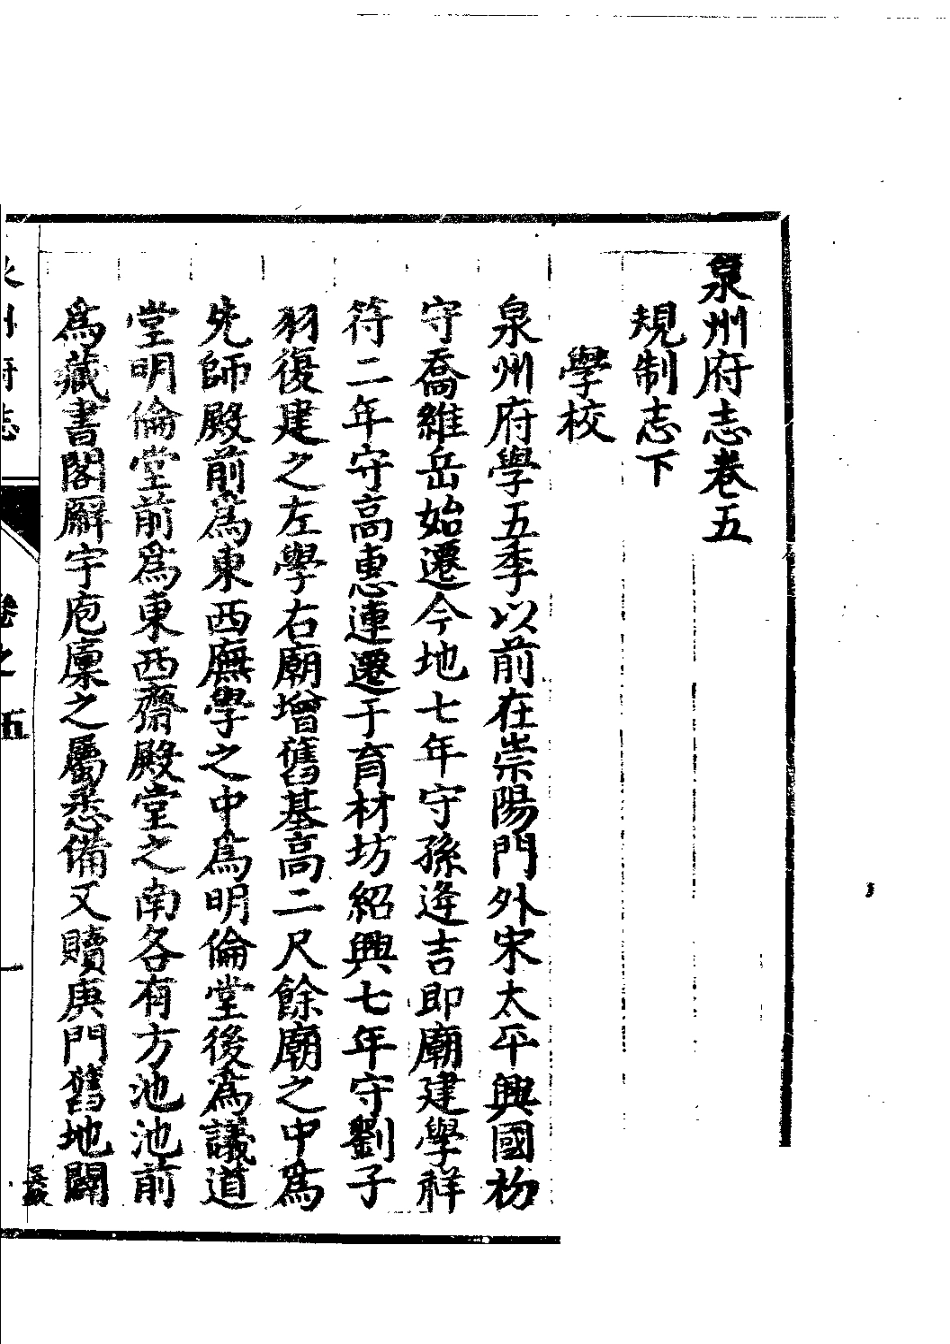 泉州府志卷五
規制志下
學校
泉州府學五季以前在崇陽門外宋太平興國初
守喬維岳始遷今地七年守孫逄吉即廟建學祥
符二年守高惠連遷于育材坊紹興七年守劉子
羽復建之左學右廟增舊基高二尺餘廟之中爲
先師殿前爲東西廡學之中爲明倫堂後爲議道
堂明倫堂前爲東西齋殿堂之南各有方池池前
爲藏書閣廨宇庖廩之屬悉備又贖庚門舊地闢
泉州府志 卷之五 一